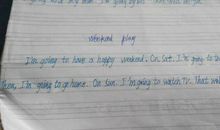 weekend play
I'm going to have a happy weekend. On Sat. I'm going to
then, I'm going to go home. On Sun. I'm going to watch TV. That